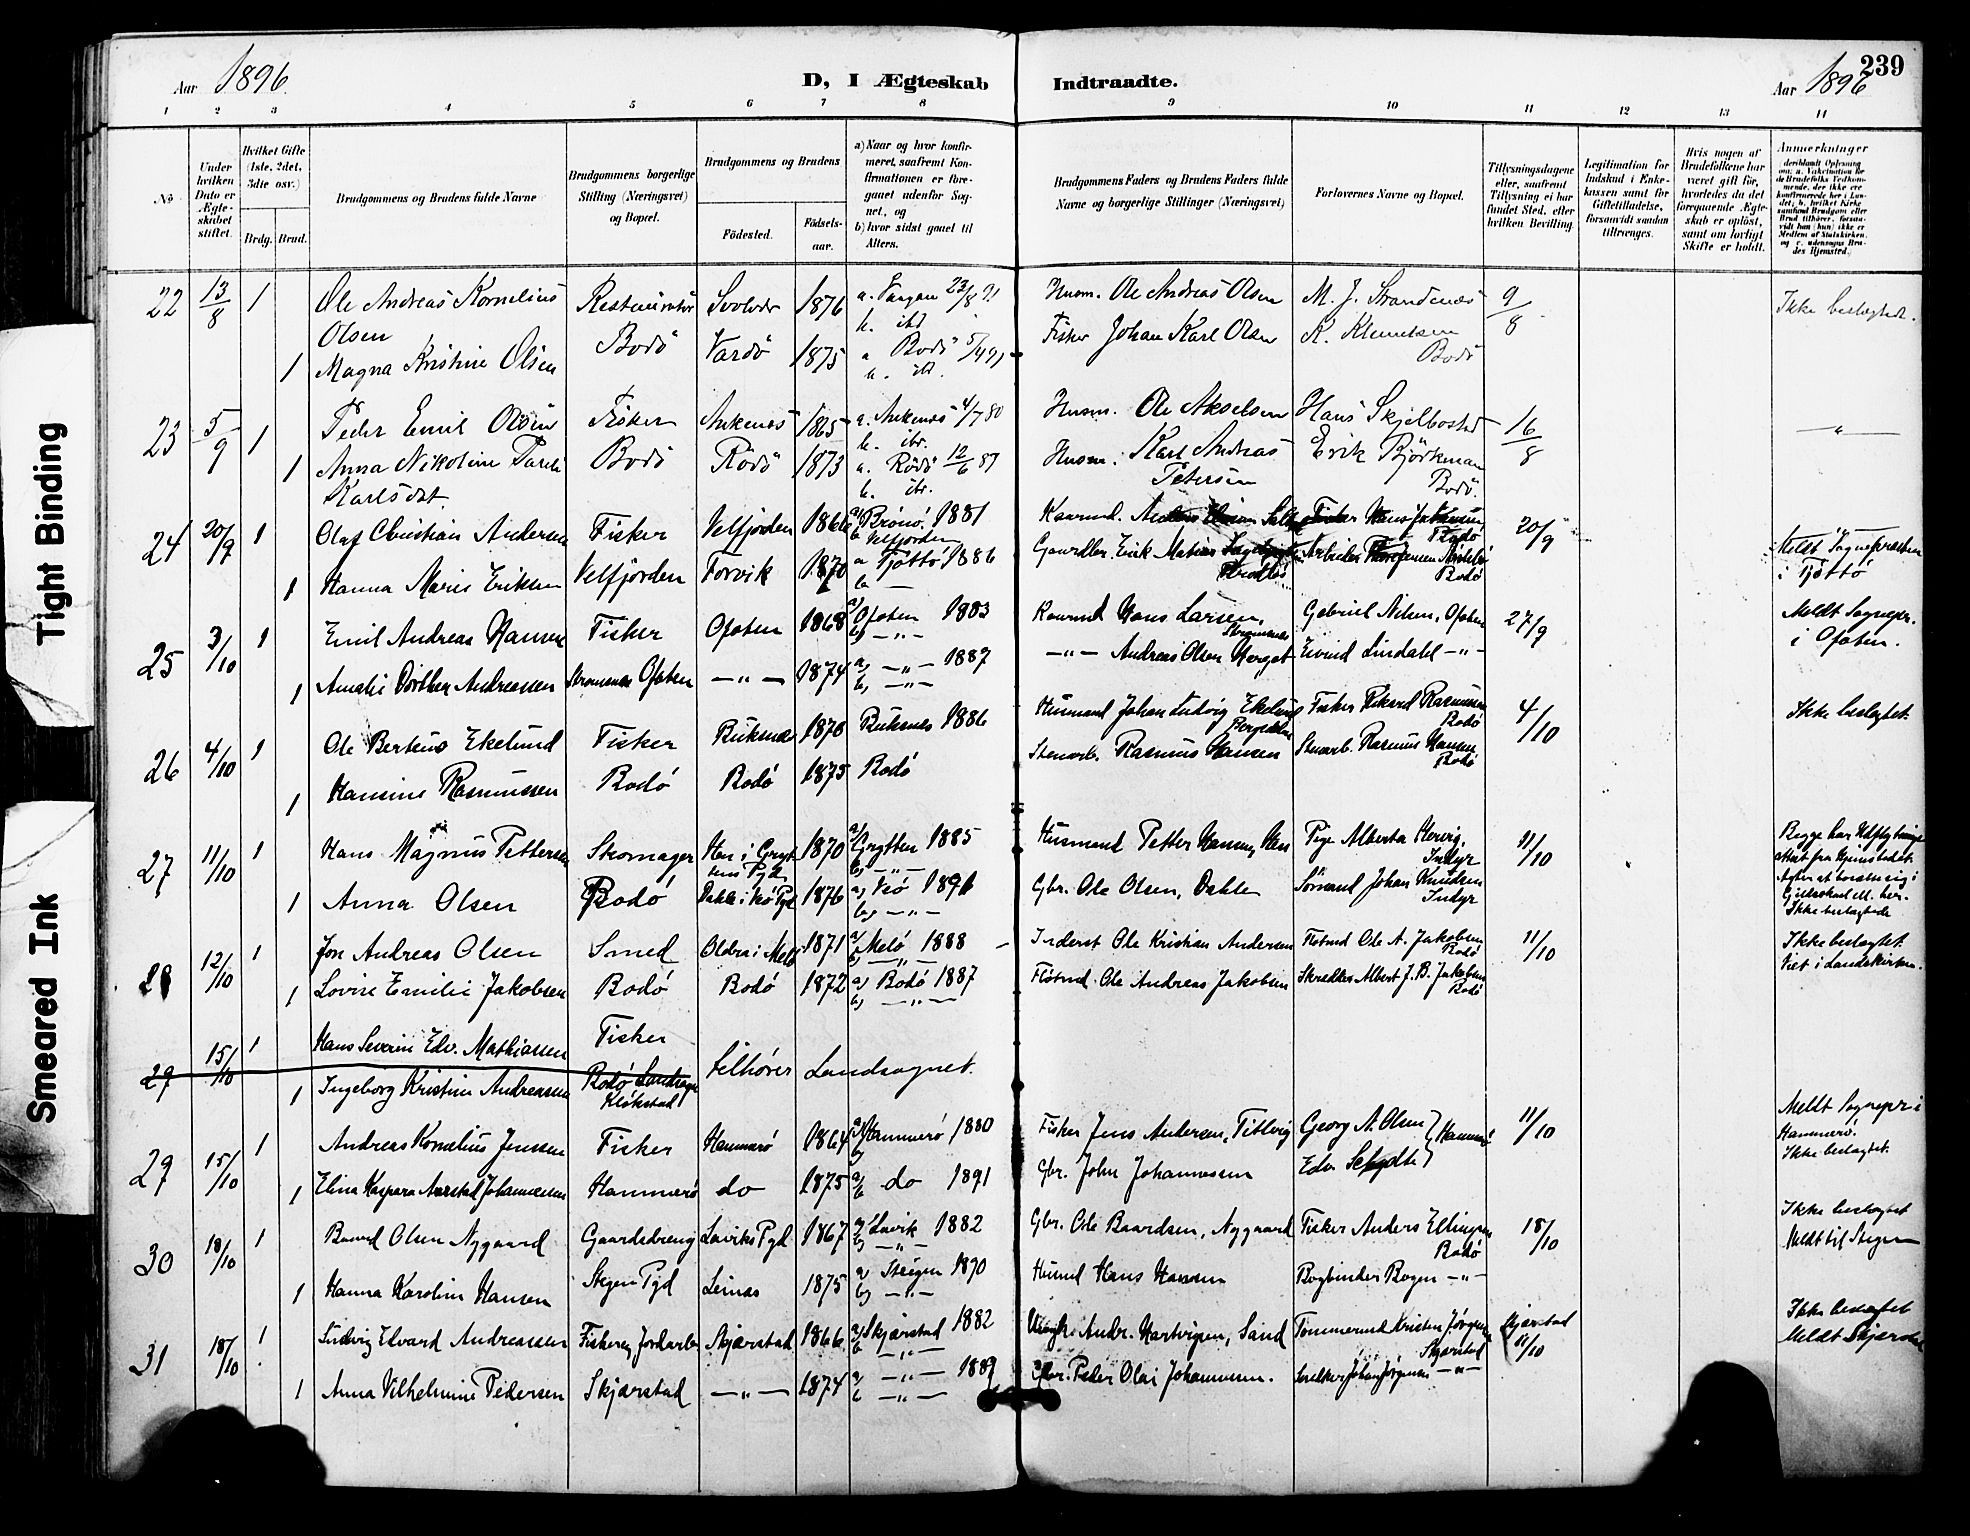 Aar 1896.
D, I Ægteskab Indtraadte.
Aar 1896
239
1 2 3 4 5 6 7 8 9 10 11 12 13 14
No
Under hvilken Dato er Ægteskabet stiftet.
Hvilket Gifte (1ste, 2det, 3die osv.)
Brdg. Brud.
Brudgommens og Brudens fulde Navne
Brudgommens borgerlige Stilling (Næringsvei) og Bopæl.
Brudgommens og Brudens
Fødested.
Fødselsaar.
a) Naar og hvor konfirmeret, saafremt Konfirmationen er foregaaet udenfor Sognet, og
b) hvor sidst gaaet til Alters.
Brudgommens Faders og Brudens Faders fulde Navne og borgerlige Stillinger (Næringsvei)
Forlovernes Navne og Bopæl.
Tillysningsdagene eller, saafremt Tillysning ei har fundet Sted, efter hvilken Bevilling.
Legitimation for Indskud i Enkekassen samt for Giftetilladelse, forsaavidt saadan tiltrænges.
Hvis nogen af Brudefolkene har været gift før, hvorledes da det foregaaende Ægteskab er opløst, samt om lovligt Skifte er holdt.
Anmærkninger
22 13/8 1 Ole Andreas Kornelius Restauratør Svolvær 1876 a. Vaagan 23/8 91 Husm. Ole Andreas Olsen M. J. Strandenæs 9/8 Ikke beslægtede.
Olsen Bodö b. ibd
1 Magna Kristine Olsen Vardö 1875 a Bodö 5/4 91 Fisker Johan Karl Olsen K. Klemetsen
b. ibd. Bodö
23 5/9 1 Peder Emil Olsen Fisker Ankenæs 1865 a. Ankenæs 4/7 80 Husm. Ole Akselsen Hans Skjelbostad 16/8 — " —
b. ibr.
1 Anna Nikoline Bodö Rödö 1873 a. Rödö 12/6 87 Husm. Karl Andreas Erik Björkman
Karlsdat. b. ibr. Petersen Bodö.
24 20/9 1 Olaf Christian Andersen Fisker Velfjorden 1866 a) Brönö 1881 20/9 Meldt Sognepresten
b Velfjorden Bodö
1 Hanna Marie Eriksen Velfjorden Forvik 1870 a Tjöttö 1886 Gaardbr. Erik Matias i Tjöttö
b — Bodö
25 3/10 1 Emil Andreas Hansen Fisker Ofoten 1868 a) Ofoten 1883 Hans Larsen, Gabriel Nilsen, Ofoten 27/9 Meldt Sognepr.
b) — " — Strømsnes i Ofoten.
1 Amalie Dorthea Andreassen Strømsnes Ofoten — " — 1874 a) — " — 1887 — " — Andreas Olsen Herget Eivind Lindahl — " —
b) — " —
26 4/10 1 Ole Berteus Ekelund Fisker Buksnæs 1870 Buksnes 1886 Husmand Johan Ludvig Ekelund Fisker Rikard Rasmussen 4/10 Ikke beslægtet.
Bodö
1 Hansine Rasmussen Bodö Bodö 1875 Bodö Stenarb. Rasmus Hansen Stenarb. Rasmus Hansen
Bodö
27 11/10 1 Hans Magnus Pettersen Skomager Hen i Gryttens Pgd 1870 a) Grytten 1885 Husmand Petter Hansen, Hen Pige Alberta Hervig, 11/10 Begge har Udflytnings
b) — " — Indyr attest fra Hjemstedet.
1 Anna Olsen Bodö Dahle i Veö Pgd 1876 a) Veö 1891 Gbr. Ole Olsen, Dahle Sømand Johan Knudsen
b) — " — Indyr Ikke beslægtede
28 12/10 1 Jon Andreas Olsen Smed Oldra i Melö 1871 a) Melö 1888 Inderst Ole Kristian Andersen Ole A. Jakobsen 11/10 Ikke beslægtet.
b) — " — Bodö Viet i Landskirken.
1 Lovise Emilie Jakobsen Bodö Bodö 1872 a) Bodö 1887 Ole Andreas Jakobsen Skrædder Albert J. B. Jakobsen
b) — " — Bodö
29 15/10 1 Hans Severin Edv. Mathiassen Fisker
Tilhører Landsognet.
1 Ingeborg Kristine Andreassen Bodö Landsogn
Kløkstad
29 15/10 1 Andreas Kornelius Jenssen Fisker Hammerö 1864 a) Hammerö 1880 Fisker Jens Andersen, Georg A. Olsen } Hammerö 11/10 Meldt Sognepr i
b) Hammerö.
1 Elina Kaspara Johannessen Hammerö do 1875 a) do 1891 Gbr. John Johannessen Edv Schydte } Ikke beslægtet.
b
30 18/10 1 Baard Olsen Nygaard Gaardsdreng Laviks Pgd 1867 a) Lavik 1882 Gbr. Ole Baardsen, Nygaard Fisker Anders Ellingsen 18/10 Ikke beslægtet
b) — " — Bodö Meldt til Stegen
1 Hanna Karoline Hansen Stegen Pgd Leines 1875 a) Steigen 1890 Husmd Hans Hansen Bogbinder Bogen — " —
b) — " —
31 18/10 1 Ludvig Edvard Andreassen Fisker og Jordarb. Skjærstad 1866 a) Skjærstad 1882 Andr. Hartvigsen, Sand Tømmermd Kristen Jørgensen Skjærstad 11/10 Ikke beslægtet
b — " — Skjærstad Meldt Skjærstad
1 Anna Vilhelmine Pedersen Skjærstad — " — 1874 a) — " — 1889 Gbr. Peder Olai Johannessen. Johan Jørgensen — " —
b — " —
Tight Binding
Smeared Ink